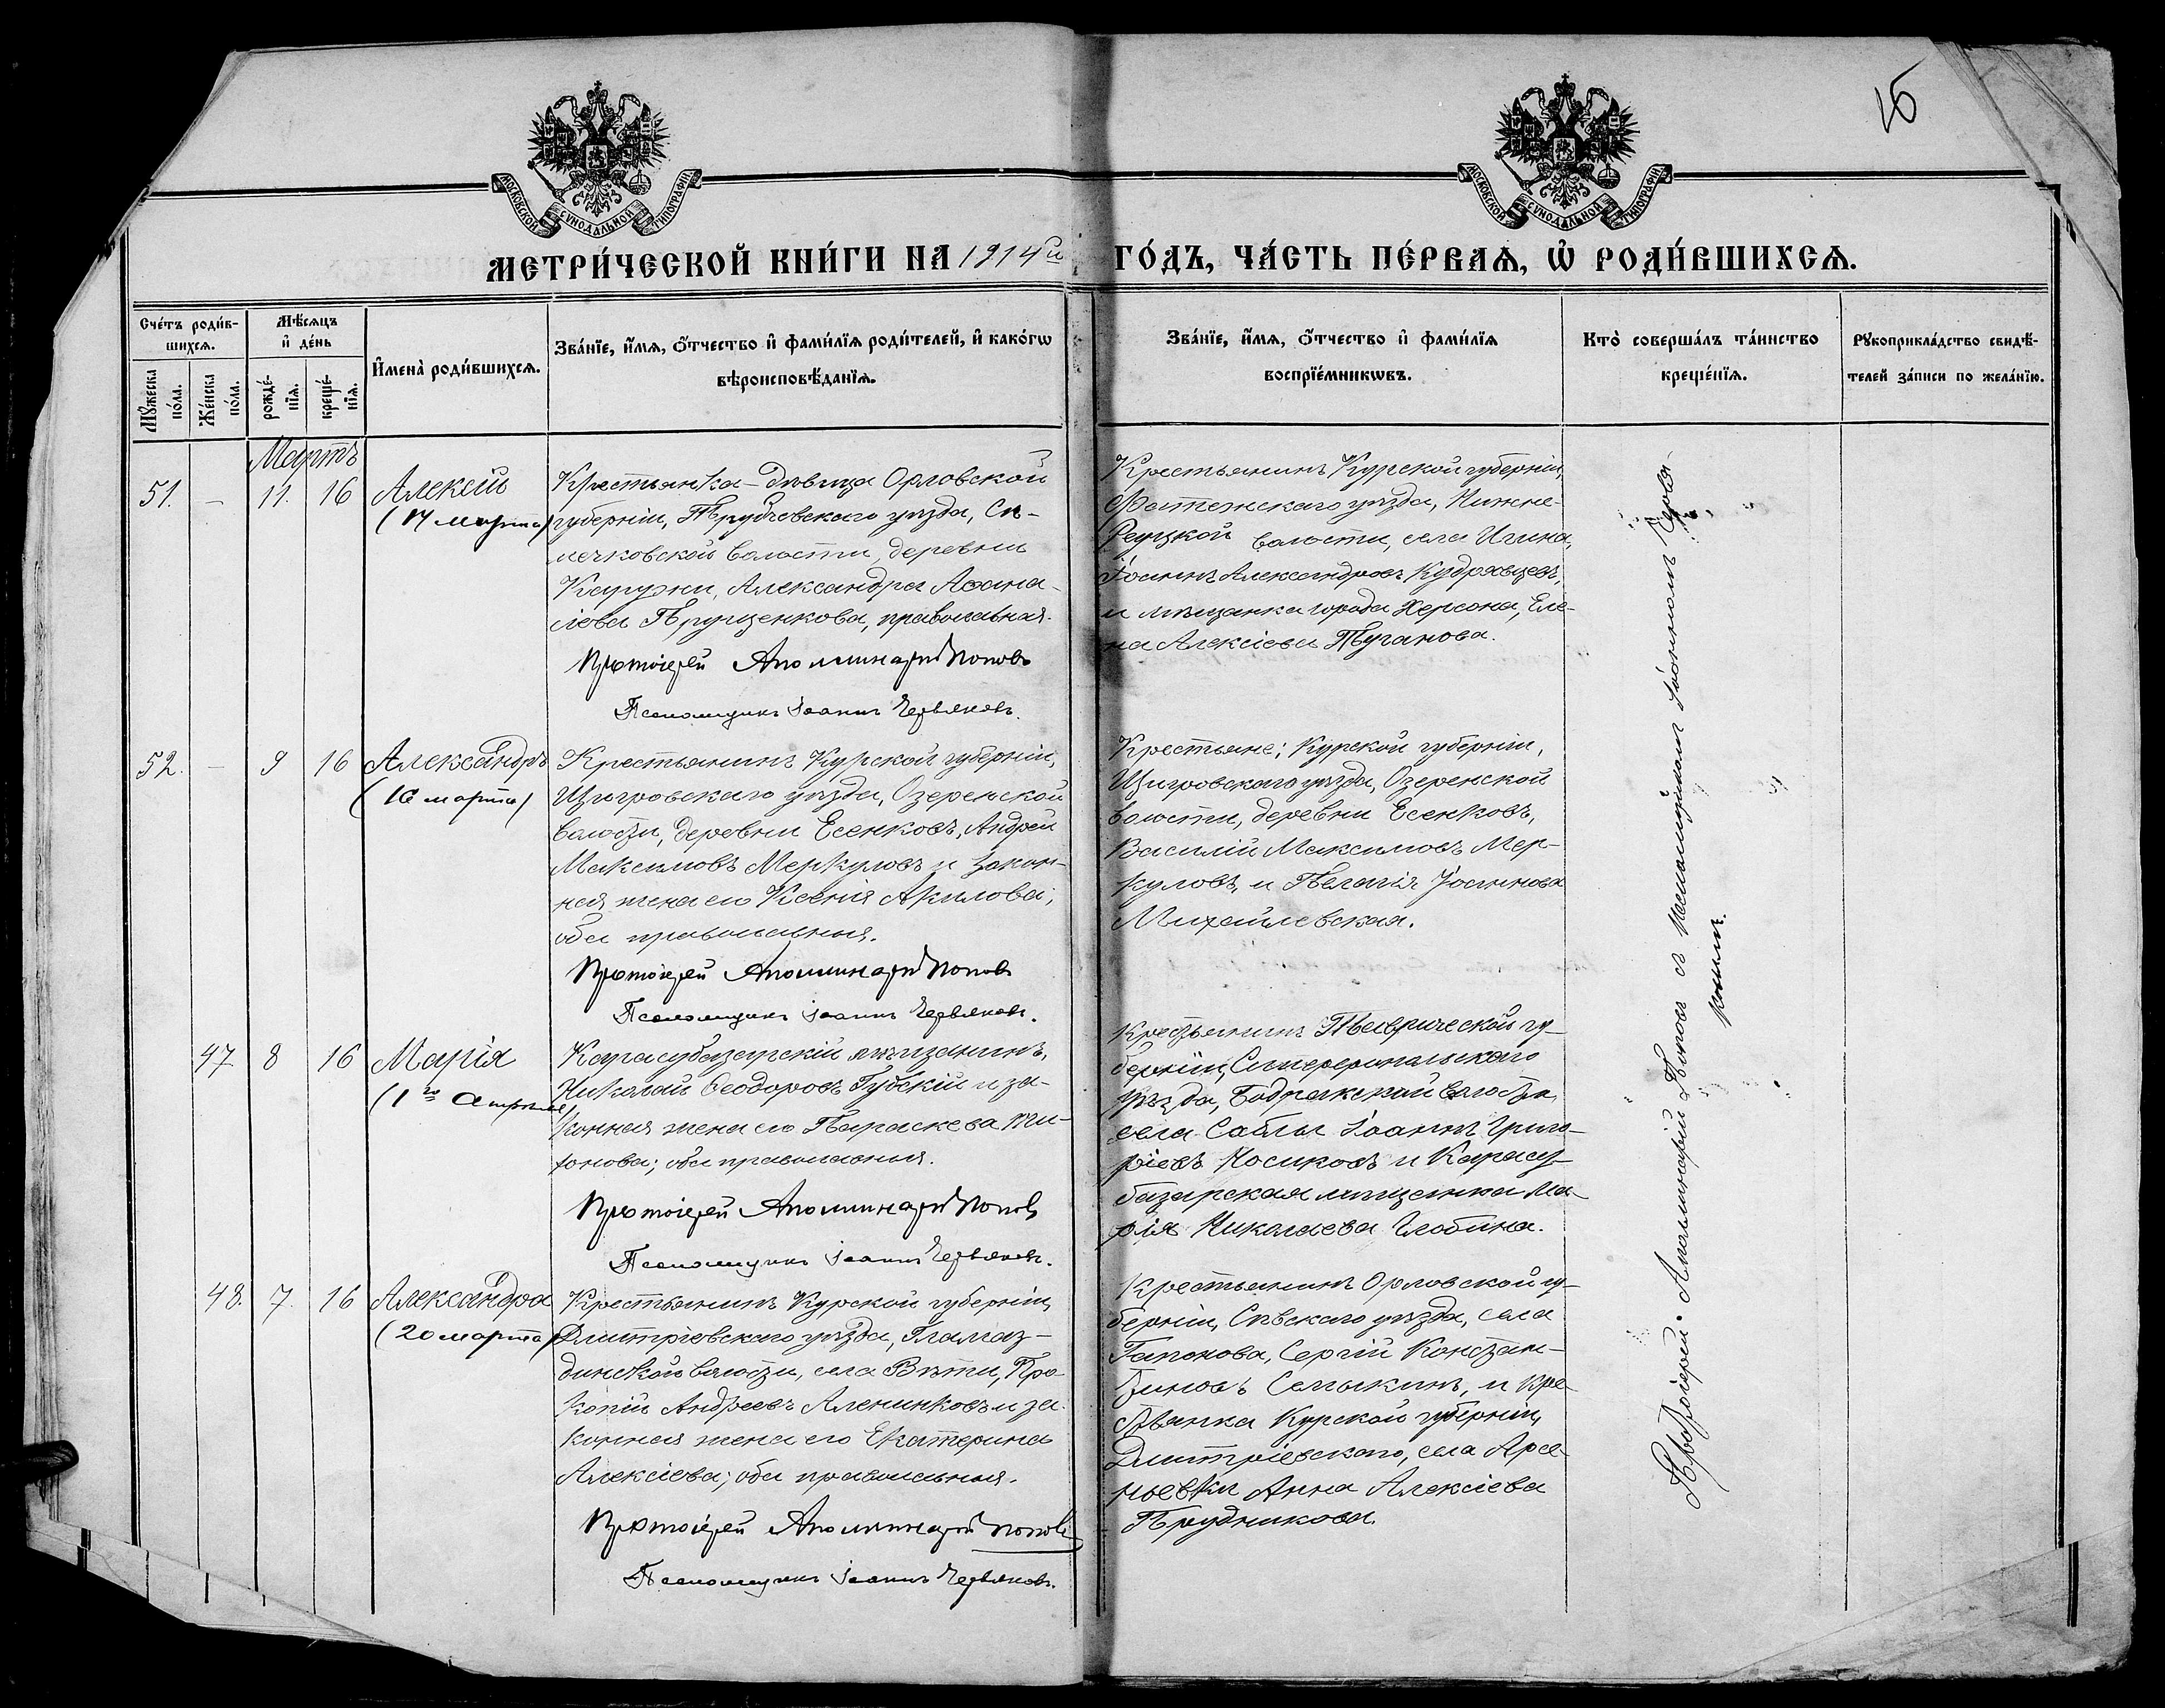 15
МОСКОВСКОЙ СѴНОДАЛЬНОЙ ТИПОГРАФІИ
МОСКОВСКОЙ СѴНОДАЛЬНОЙ ТИПОГРАФІИ
МЕТРИ́ЧЕСКОЙ КНИ́ГИ НА 1914й ГО́ДЪ, ЧА́СТЬ ПЕ́РВАѦ, Ѡ҆ РОДИ́ВШИХСѦ.
Сче́тъ роди́в-
шихсѧ.
Мѣ́сѧцъ
и҆ де́нь
И҆мена̀ роди́вшихсѧ.
Зва́нїе, и҆́мѧ, ѻ҆́тчество и҆ фами́лїѧ роди́телей, и҆ како́гѡ
вѣроисповѣ́данїѧ.
Зва́нїе, и҆́мѧ, ѻ҆́тчество и҆ фами́лїѧ
воспрїе́мникѡвъ.
Кто̀ соверша́лъ та́инство
креще́нїѧ.
Рꙋкоприкла́дство свидѣ́-
телей за́писи по жела́нїю.
Мꙋ́жеска
по́ла.
Же́нска
по́ла.
рожде́-
нїѧ.
креще́-
нїѧ.
Мартъ
51. – 11. 16 Алексій
(17 марта)
Крестьянка-дѣвица Орловской
губерніи, Трубчевскаго уѣзда, Сѣ-
мечковской волости, деревни
Каружи, Александра Аѳана-
сіева Прущенкова, православная.
Протоіерей Аполлинарій Поповъ
Псаломщикъ Іоаннъ Червяковъ.
Крестьянинъ Курской губерніи,
Фатежскаго уѣзда, Нижне-
Реутской волости, села Игина,
Іоаннъ Александровъ Кудрявцевъ,
и мѣщанка города Херсона, Еле-
на Алексіева Пуганова.
52. – 9 16 Александръ
(16 марта)
Крестьянинъ Курской губерніи,
Щигровскаго уѣзда, Озеренской
волости, деревни Есенковъ, Андрей
Максимовъ Меркуловъ и закон-
ная жена его Ксенія Акилова;
оба православныя.
Протоіерей Аполлинарій Поповъ
Псаломщикъ Іоаннъ Червяковъ.
Крестьяне: Курской губерніи,
Щигровскаго уѣзда, Озеренской
волости, деревни Есенковъ,
Василій Максимовъ Мер-
куловъ, и Пелагія Іоаннова
Михайлевская.
47 8 16 Марія
(1го Апрѣля)
Карасубазарскій мѣщанинъ,
Николай Ѳеодоровъ Губскій и за-
конная жена его Параскева Ти-
хонова; оба православныя.
Протоіерей Аполлинарій Поповъ
Псаломщикъ Іоаннъ Червяковъ.
Крестьянинъ Таврической гу-
берніи, Симферопольскаго
уѣзда, Бодракской волости,
села Саблы Іоаннъ Григо-
ріевъ Носиковъ и Карасу-
базарская мѣщанка Ма-
рія Николаева Глобина.
48. 7. 16 Александра
(20 марта)
Крестьянинъ Курской губерніи,
Дмитріевскаго уѣзда, Гламаз-
динской волости, села Вѣти, Про-
копій Андреевъ Аленниковъ и за-
конная жена его Екатерина
Алексіева; оба православныя.
Протоіерей Аполлинарій Поповъ
Псаломщикъ Іоаннъ Червяковъ.
Крестьянинъ Орловской гу-
берніи, Сѣвскаго уѣзда, села
Гапонова, Сергій Констан-
тиновъ Семыкинъ, и кре-
стьянка Курской губерніи,
Дмитріевскаго, села Арсе-
ньевки Анна Алексіева
Прудникова.
Протоіерей Аполлинарій Поповъ съ псаломщикомъ Іоанномъ Червя-
ковымъ.